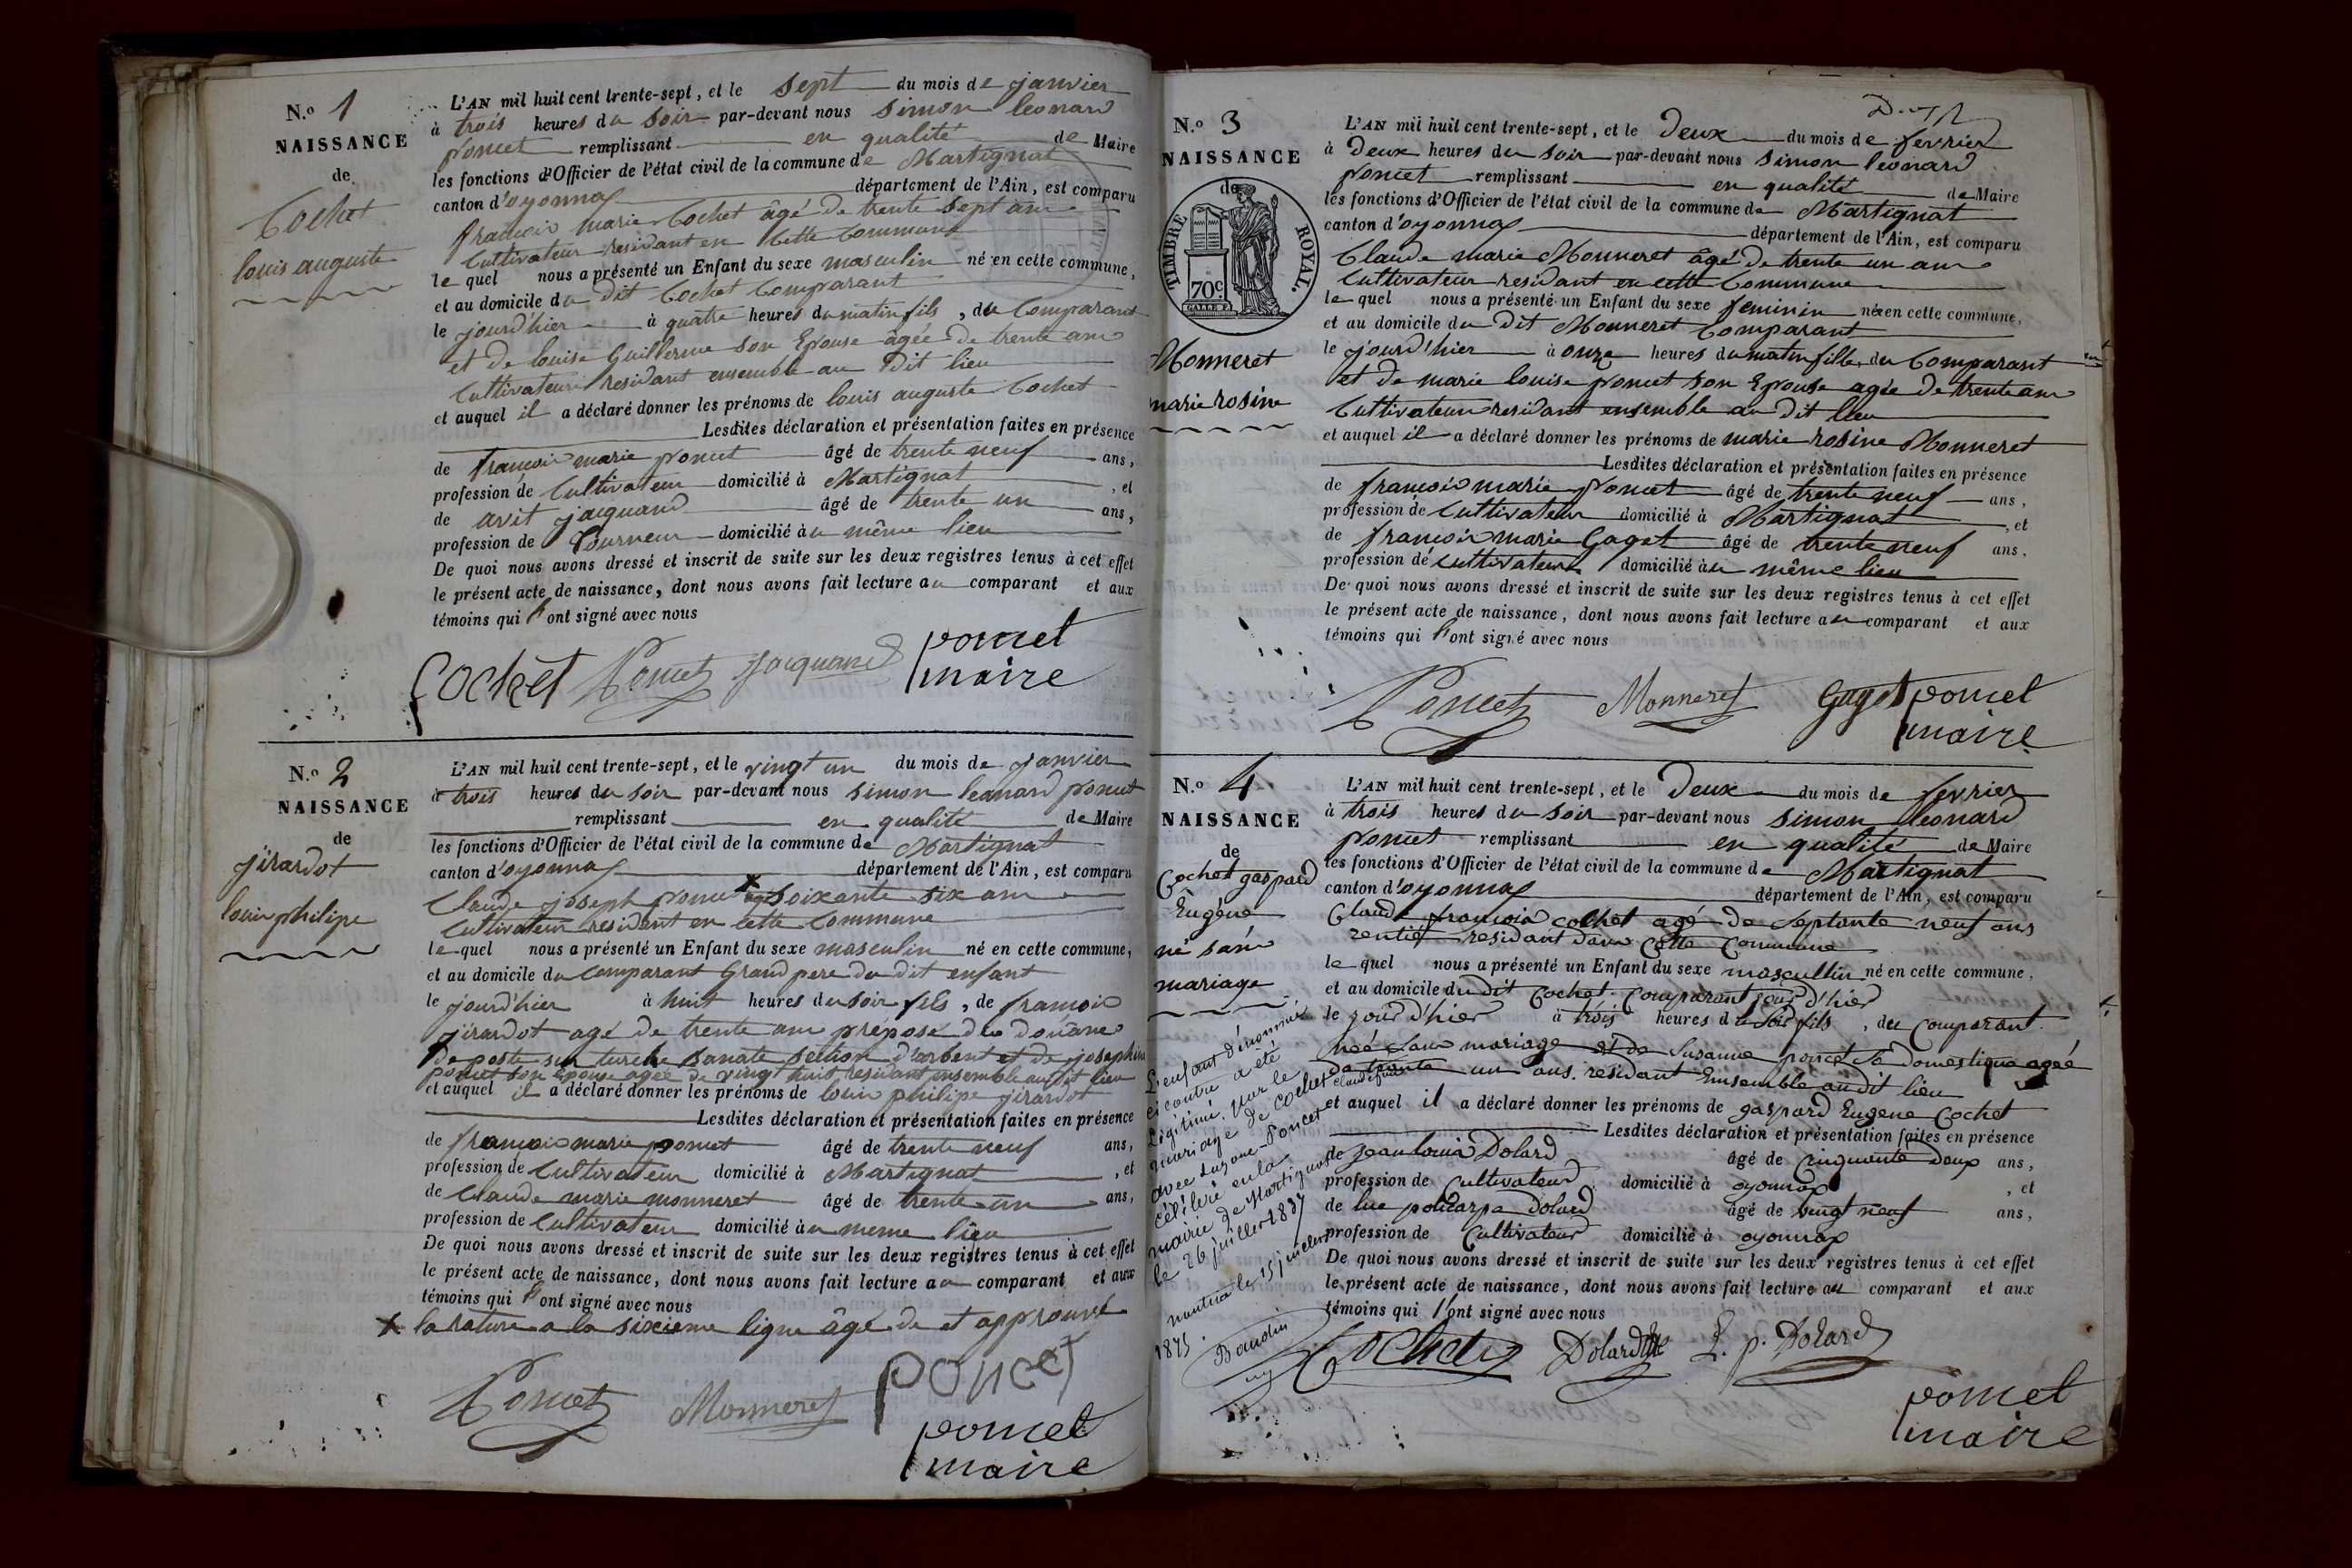 N.º 1
NAISSANCE
de
Cochet
louis auguste
L'AN mil huit cent trente-sept, et le sept du mois de janvier
à trois heures du soir par-devant nous simon leonard
poncet remplissant en qualité de Maire
les fonctions d'Officier de l'état civil de la commune de Martignat
canton d'oyonnax département de l'Ain, est comparu
francois marie Cochet âgé de trente sept ans
Cultivateur residant en Cette Commune
le quel nous a présenté un Enfant du sexe masculin né en cette commune,
et au domicile du dit Cochet Comparant
le jourd'hier à quatre heures du matin fils, du Comparant
et de louise Guillerme son Epouse âgée de trente ans
Cultivateurs residant ensemble au dit lieu
et auquel il a déclaré donner les prénoms de louis auguste Cochet
Lesdites déclaration et présentation faites en présence
de francois marie poncet âgé de trente neuf ans,
profession de Cultivateur domicilié à Martignat, et
de avit jacquand âgé de trente un ans,
profession de Tourneur domicilié au même lieu
De quoi nous avons dressé et inscrit de suite sur les deux registres tenus à cet effet
le présent acte de naissance, dont nous avons fait lecture au comparant et aux
témoins qui l'ont signé avec nous
Cochet Poncet jacquand poncet
maire
N.º 2
NAISSANCE
de
jirardot
louis philipe
L'AN mil huit cent trente-sept, et le vingt un du mois de janvier
à trois heures du soir par-devant nous simon leonard poncet
remplissant en qualité de Maire
les fonctions d'Officier de l'état civil de la commune de Martignat
canton d'oyonnax département de l'Ain, est comparu
Claude joseph poncet soixante six ans
Cultivateur residant en cette Commune
le quel nous a présenté un Enfant du sexe masculin né en cette commune,
et au domicile du comparant Grand pere du dit enfant
le jourd'hier à huit heures du soir fils, de francois
jirardot agé de trente ans préposé des douane
de poste sur section d'arbent et de josephine
poncet son épouse agée de vingt huit residant ensemble au dit lieu
et auquel il a déclaré donner les prénoms de louis philipe jirardot
Lesdites déclaration et présentation faites en présence
de francois marie poncet âgé de trente neuf ans,
profession de Cultivateur domicilié à Martignat, et
de Claude marie monneret âgé de trente un ans,
profession de Cultivateur domicilié au meme lieu
De quoi nous avons dressé et inscrit de suite sur les deux registres tenus à cet effet
le présent acte de naissance, dont nous avons fait lecture au comparant et aux
témoins qui l'ont signé avec nous
x la rature a la sixieme ligne âgé de et approuvé
Poncet Monneret poncet
poncet
maire
N.º 3
NAISSANCE
de
TIMBRE ROYAL.
70c
Monneret
marie rosine
L'AN mil huit cent trente-sept, et le deux du mois de fevrier
à deux heures du soir par-devant nous simon leonard
poncet remplissant en qualité de Maire
les fonctions d'Officier de l'état civil de la commune de Martignat
canton d'oyonnax département de l'Ain, est comparu
Claude marie Monneret âgé de trente un ans
Cultivateur residant en cette Commune
le quel nous a présenté un Enfant du sexe feminin née en cette commune,
et au domicile du dit Monneret Comparant
le jourd'hier à onze heures du matin fille, du Comparant
et de marie louise poncet son Epouse agée de trente ans
Cultivateurs residant ensemble au dit lieu
et auquel il a déclaré donner les prénoms de marie rosine Monneret
Lesdites déclaration et présentation faites en présence
de francois marie poncet âgé de trente neuf ans,
profession de Cultivateur domicilié à Martignat, et
de francois marie Gaget âgé de trente neuf ans,
profession de cultivateur domicilié au même lieu
De quoi nous avons dressé et inscrit de suite sur les deux registres tenus à cet effet
le présent acte de naissance, dont nous avons fait lecture au comparant et aux
témoins qui l'ont signé avec nous
Poncet Monneret Gaget poncet
maire
N.º 4
NAISSANCE
de
Cochet gaspard
Eugène
né sans
mariage
L'enfant dénommé
ci contre a été
légitimé par le
mariage de Cochet claude françois
avec suzanne Poncet
célébré en la
mairie de Martignat
le 26 juillet 1837
nantua le 15 juillet
1875
Baudin
L'AN mil huit cent trente-sept, et le deux du mois de fevrier
à trois heures du soir par-devant nous simon leonard
poncet remplissant en qualité de Maire
les fonctions d'Officier de l'état civil de la commune de Martignat
canton d'oyonnax département de l'Ain, est comparu
Claude françois cochet agé de septante neuf ans
rentier residant dans cette Commune
le quel nous a présenté un Enfant du sexe mascullin né en cette commune,
et au domicile du dit Cochet Comparant jour d'hier
le jour d'hier à trois heures du soir fils, du Comparant
née sans mariage et de Susanne poncet sa domestique agée
de trente un ans. residant Ensemble au dit lieu
et auquel il a déclaré donner les prénoms de gaspard Eugene Cochet
Lesdites déclaration et présentation faites en présence
de jean louis Dolard âgé de cinquante deux ans,
profession de Cultivateur domicilié à oyonnax, et
de luc policarpe Dolard âgé de vingt neuf ans,
profession de Cultivateur domicilié à oyonnax
De quoi nous avons dressé et inscrit de suite sur les deux registres tenus à cet effet
le présent acte de naissance, dont nous avons fait lecture au comparant et aux
témoins qui l'ont signé avec nous
Cochet Dolard L. p. Dolard
poncet
maire